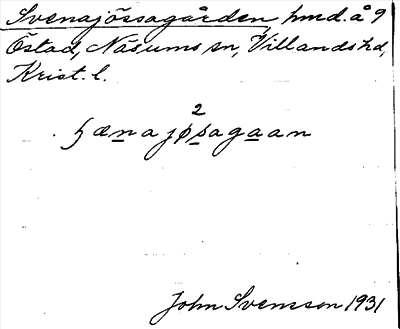 Svenajössagården, hmd. å 9
Östad, Näsums sn, Villands hd,
Krist. l.
2
hænajøsagaan
John Svensson 1931